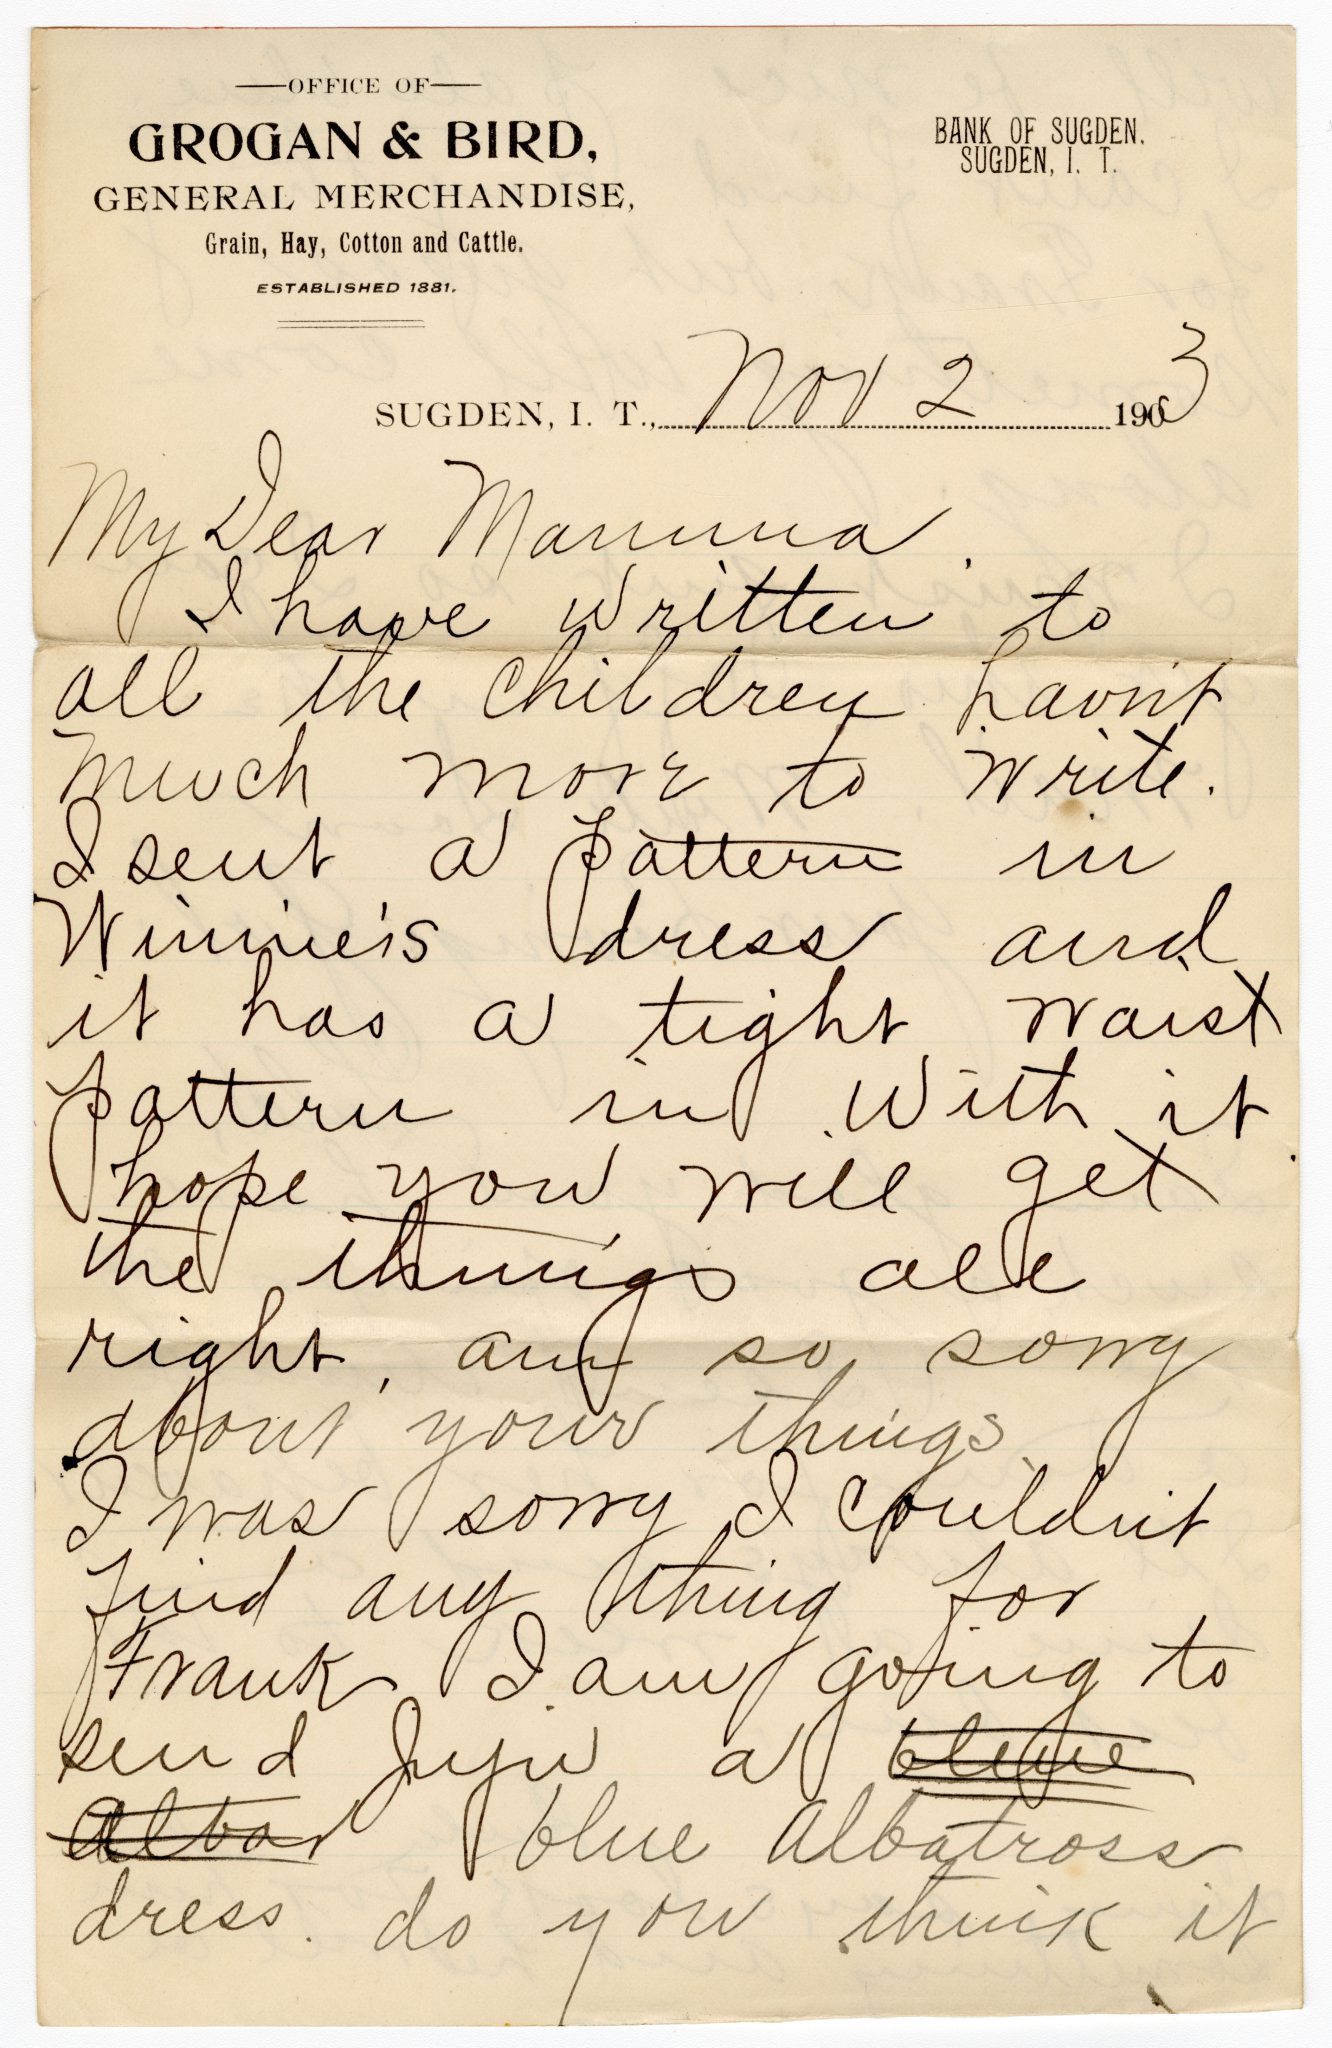 OFFICE OF
GROGAN & BIRD,
GENERAL MERCHANDISE,
Grain, Hay, Cotton and Cattle.
ESTABLISHED 1881.
BANK OF SUGDEN.
SUGDEN, I. T.
SUGDEN, I. T., Nov 2 1903
My Dear Mamma.
I have written to
all the children havn't
much more to write.
I sent a pattern in
Winnie's dress and
it has a tight waist
pattern in with it
hope you will get
the things all
right, am so sorry
about your things
I was sorry I couldn't
find any thing for
Frank I am going to
send a blue
Albat blue Albatross
dress. do you think it